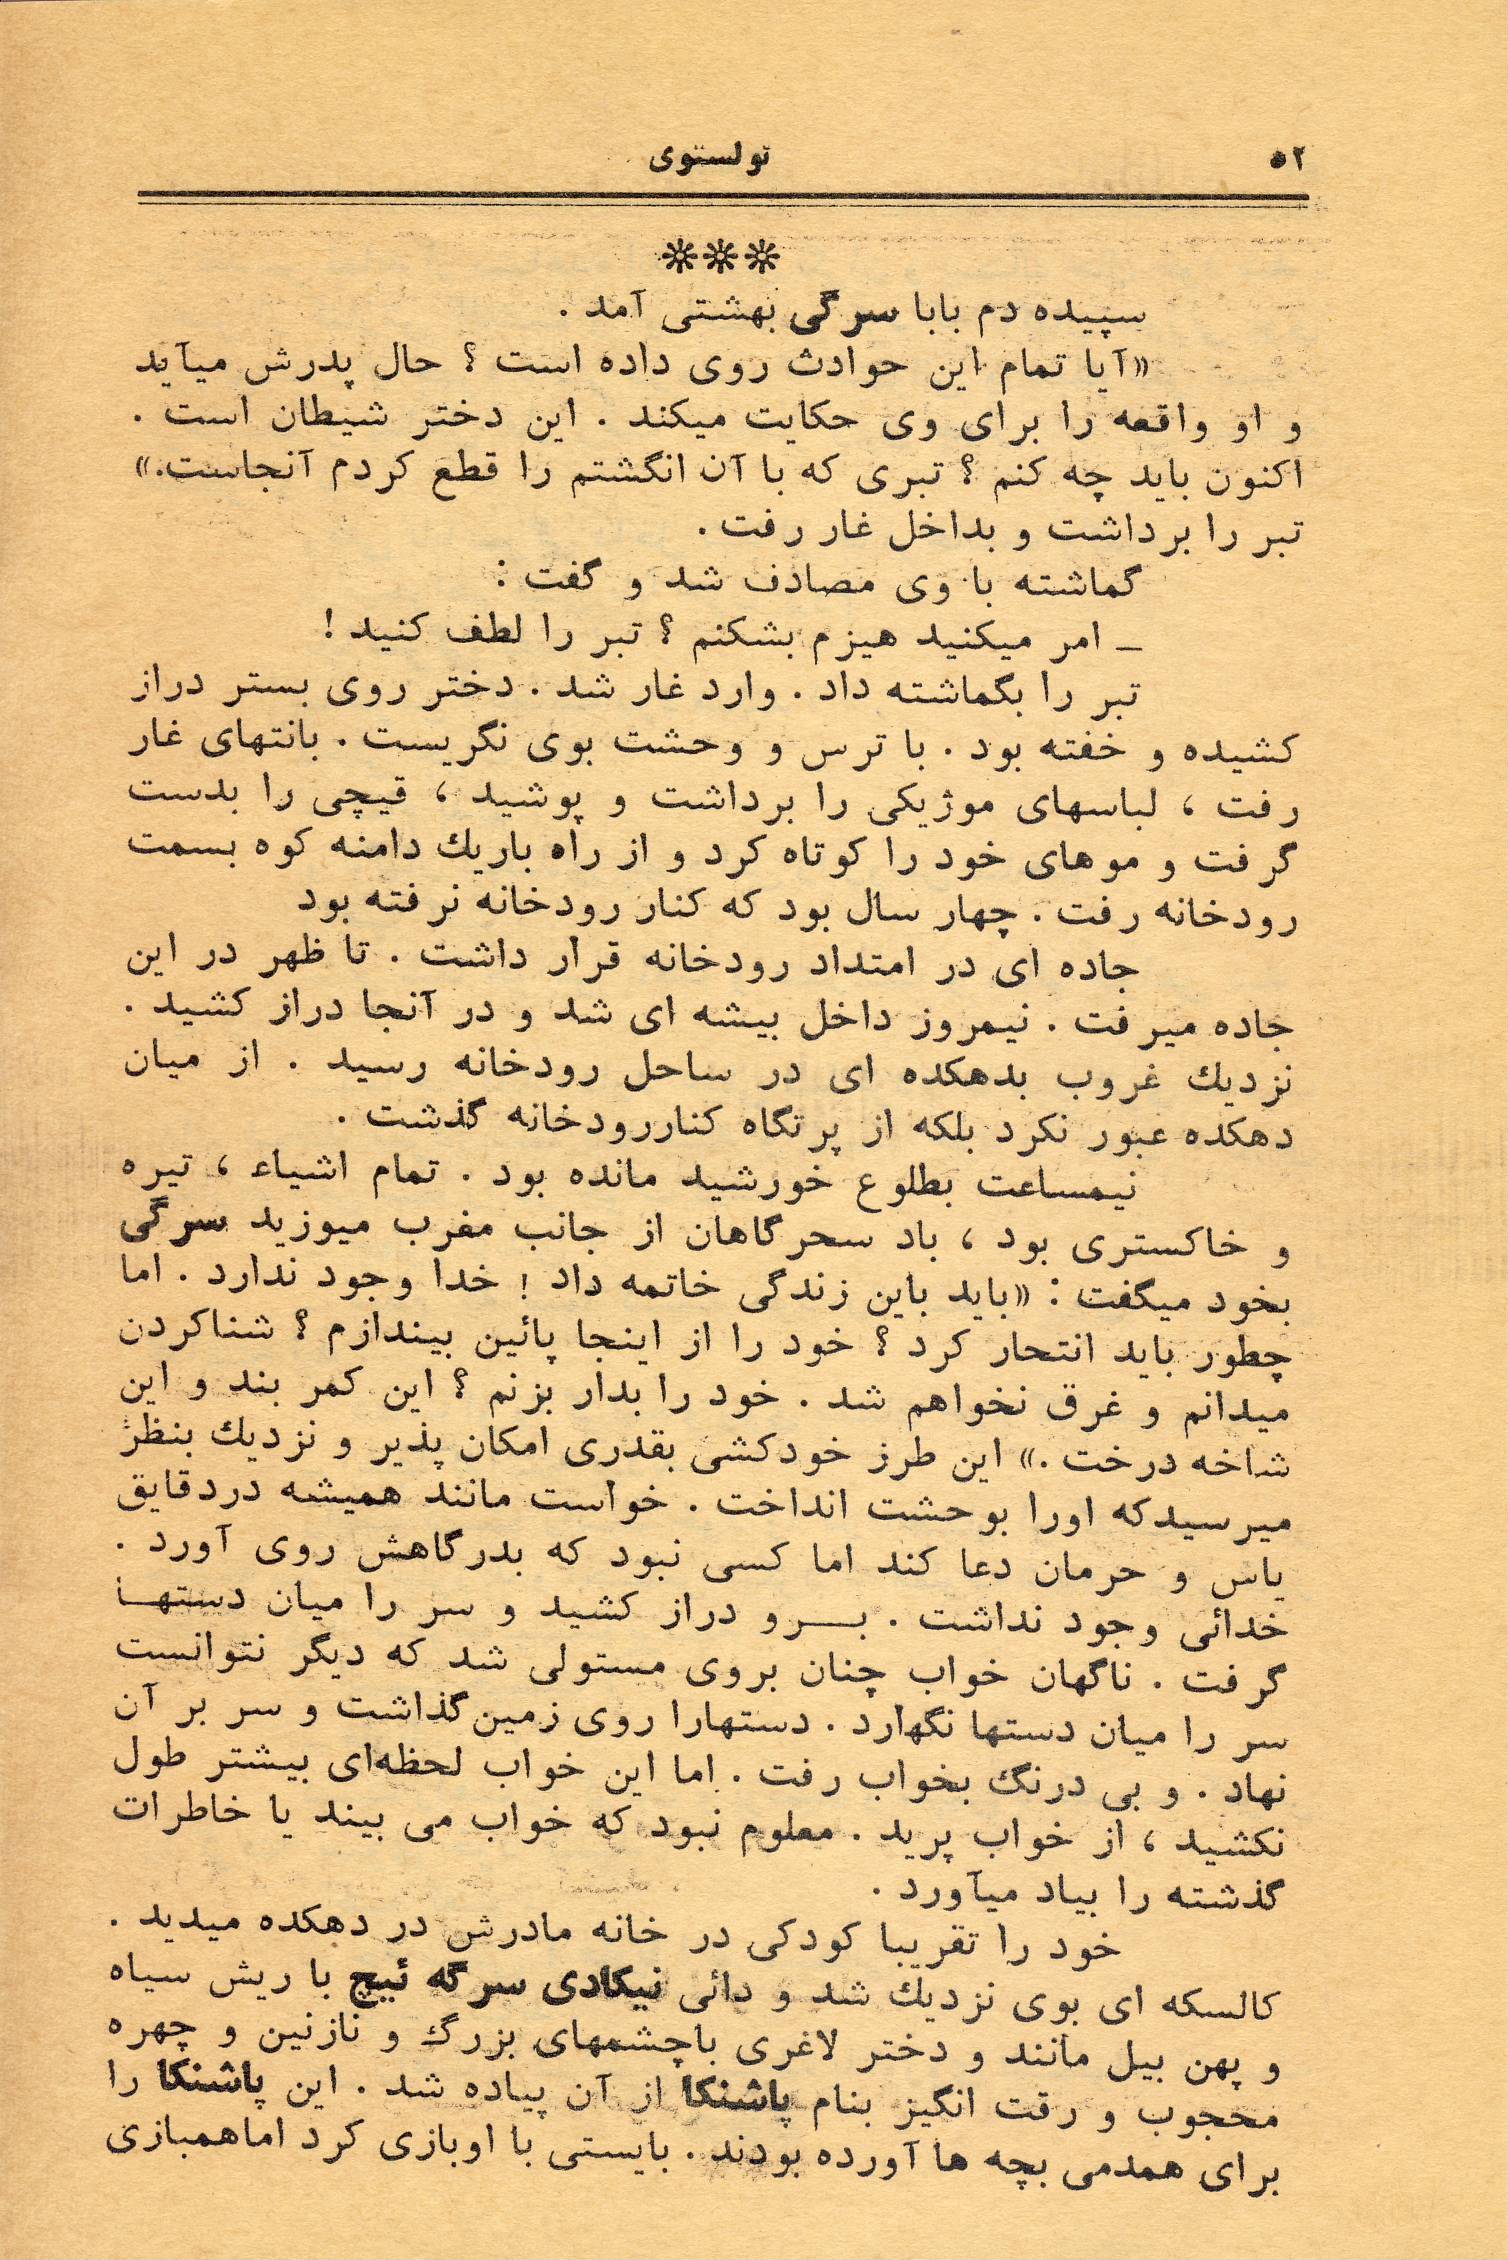 ۵۲
تولستوی
***
سپیده دم بابا سرگی بهشتی آمد .
«آیا تمام این حوادث روی داده است ؟ حال پدرش میآید
و او واقعه را برای وی حکایت میکند . این دختر شیطان است .
اکنون باید چه کنم ؟ تبری که با آن انگشتم را قطع کردم آنجاست.»
تبر را برداشت و بداخل غار رفت .
گماشته با وی مصادف شد و گفت :
ـ امر میکنید هیزم بشکنم ؟ تبر را لطف کنید !
تبر را بگماشته داد . وارد غار شد . دختر روی بستر دراز
کشیده و خفته بود . با ترس و وحشت بوی نگریست . بانتهای غار
رفت ، لباسهای موژیکی را برداشت و پوشید ، قیچی را بدست
گرفت و موهای خود را کوتاه کرد و از راه باریك دامنه کوه بسمت
رودخانه رفت . چهار سال بود که کنار رودخانه نرفته بود
جاده ای در امتداد رودخانه قرار داشت . تا ظهر در این
جاده میرفت . نیمروز داخل بیشه ای شد و در آنجا دراز کشید .
نزدیك غروب بدهکده ای در ساحل رودخانه رسید . از میان
دهکده عبور نکرد بلکه از پرتگاه کناررودخانه گذشت .
نیمساعت بطلوع خورشید مانده بود . تمام اشیاء ، تیره
و خاکستری بود ، باد سحرگاهان از جانب مغرب میوزید سرگی
بخود میگفت : «باید باین زندگی خاتمه داد ! خدا وجود ندارد . اما
چطور باید انتحار کرد ؟ خود را از اینجا پائین بیندازم ؟ شناکردن
میدانم و غرق نخواهم شد . خود را بدار بزنم ؟ این کمر بند و این
شاخه درخت .» این طرز خودکشی بقدری امکان پذیر و نزدیك بنظر
میرسیدکه اورا بوحشت انداخت . خواست مانند همیشه دردقایق
یاس و حرمان دعا کند اما کسی نبود که بدرگاهش روی آورد .
خدائی وجود نداشت . بـــرو دراز کشید و سر را میان دستهـا
گرفت . ناگهان خواب چنان بروی مستولی شد که دیگر نتوانست
سر را میان دستها نگهارد . دستهارا روی زمین گذاشت و سر بر آن
نهاد . و بی درنگ بخواب رفت . اما این خواب لحظه‌ای بیشتر طول
نکشید ، از خواب پرید . معلوم نبود که خواب می بیند یا خاطرات
گذشته را بیاد میآورد .
خود را تقریبا کودکی در خانه مادرش در دهکده میدید .
کالسکه ای بوی نزدیك شد و دائی نیکادی سرگه ئیچ با ریش سیاه
و پهن بیل مانند و دختر لاغری باچشمهای بزرگ و نازنین و چهره
محجوب و رقت انگیز بنام پاشنکا از آن پیاده شد . این پاشنکا را
برای همدمی بچه ها آورده بودند . بایستی با اوبازی کرد اماهمبازی